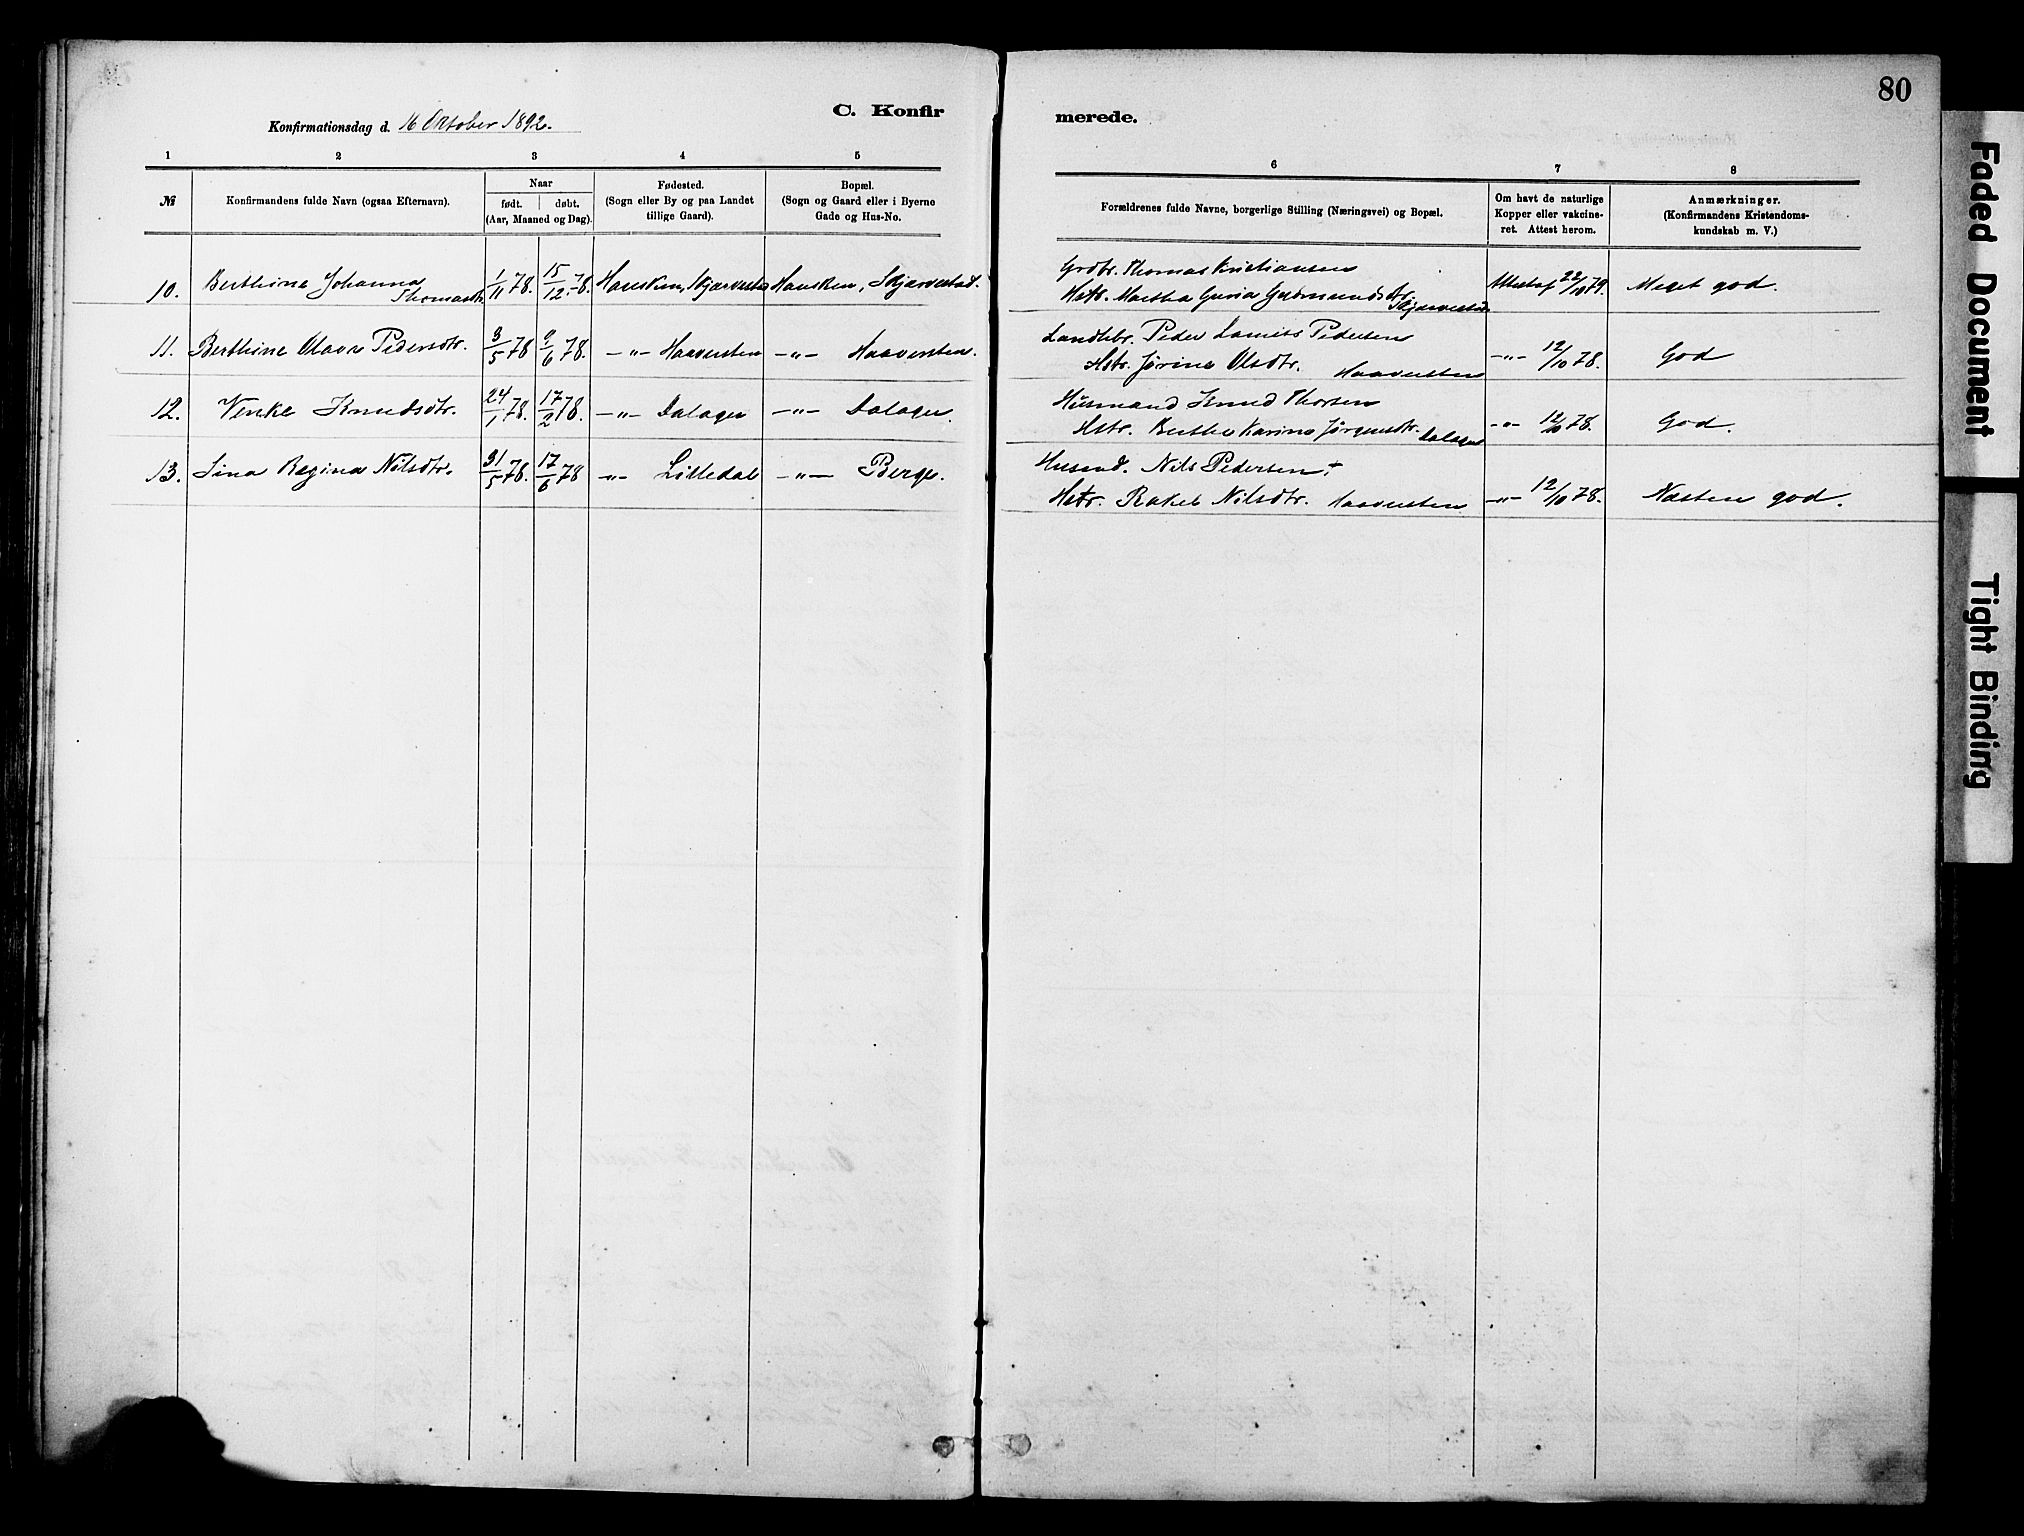 80
C. Konfirmerede.
Konfirmationsdag d. 16 Oktober 1892.
1 2 3 4 5 6 7 8
№ Konfirmandens fulde Navn (ogsaa Efternavn). Naar født. døbt. (Aar, Maaned og Dag). Fødested. (Sogn eller By og paa Landet tillige Gaard). Bopæl. (Sogn og Gaard eller i Byerne Gade og Hus-No. Forældrenes fulde Navne, borgerlige Stilling (Næringsvei) og Bopæl. Om havt de naturlige Kopper eller vakcineret. Attest herom. Anmærkninger. (Konfirmandens Kristendomskundskab m. V.)
10. Berthine Johanna Thomasdtr. 1/11 78. 15/12 78. Hausken, Hausken, Skjærvestad. Grdbr. Thomas Kristiansen
Hstr. Martha Guria Gudmundsdtr. Attest af 22/10 79. Meget god.
11. Berthine Olava Pedersdtr. 3/5 78 9/6 78. -"- Haaversten -"- Haaversten. Landhbr. Peder Laurits Pedersen
Hstr. Jørine Olsdtr. Haaversten -"- 12/10 78. God
12. Venke Knudsdtr. 24/1 78. 17/2 78. -"- Dalager -"- Dalager. Husmand Knud Thorsen
Hstr. Berthe Karine Jørgensdtr. Dalager -"- 12/10 78. God.
13. Sina Regina Nilsdtr. 31/5 78. 17/6 78 -"- Lilledal -"- Berge. Husmd. Nils Pedersen +
Hstr. Rakel Nilsdtr. Haaversten -"- 12/10 78. Næsten god.
Faded Document
Tight Binding